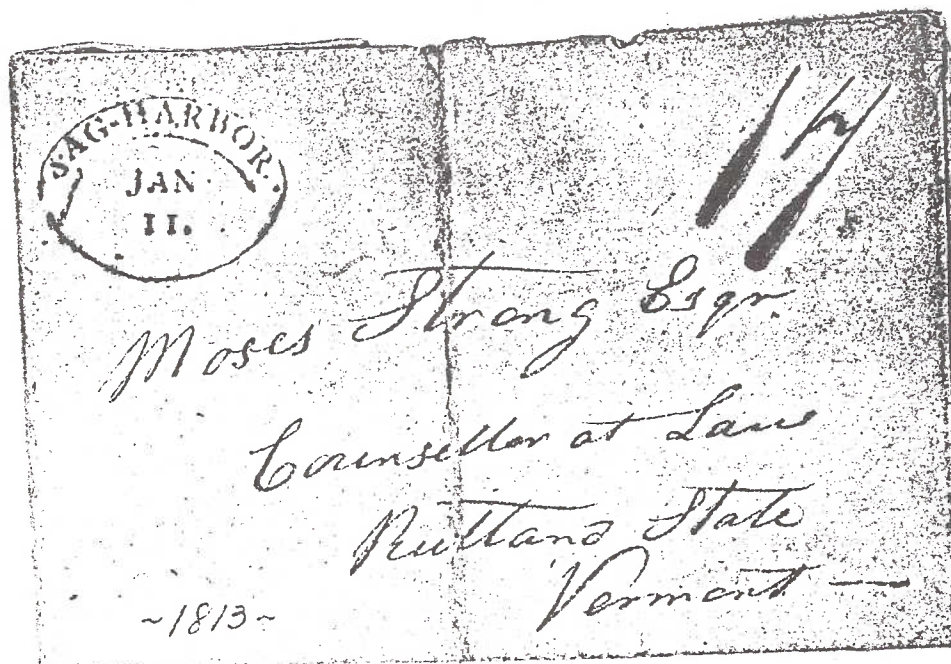 SAG-HARBOR.
JAN
11.
17
Moses Strong Esqr.
Counsellor at Law
Rutland State
Vermont —
~1813~